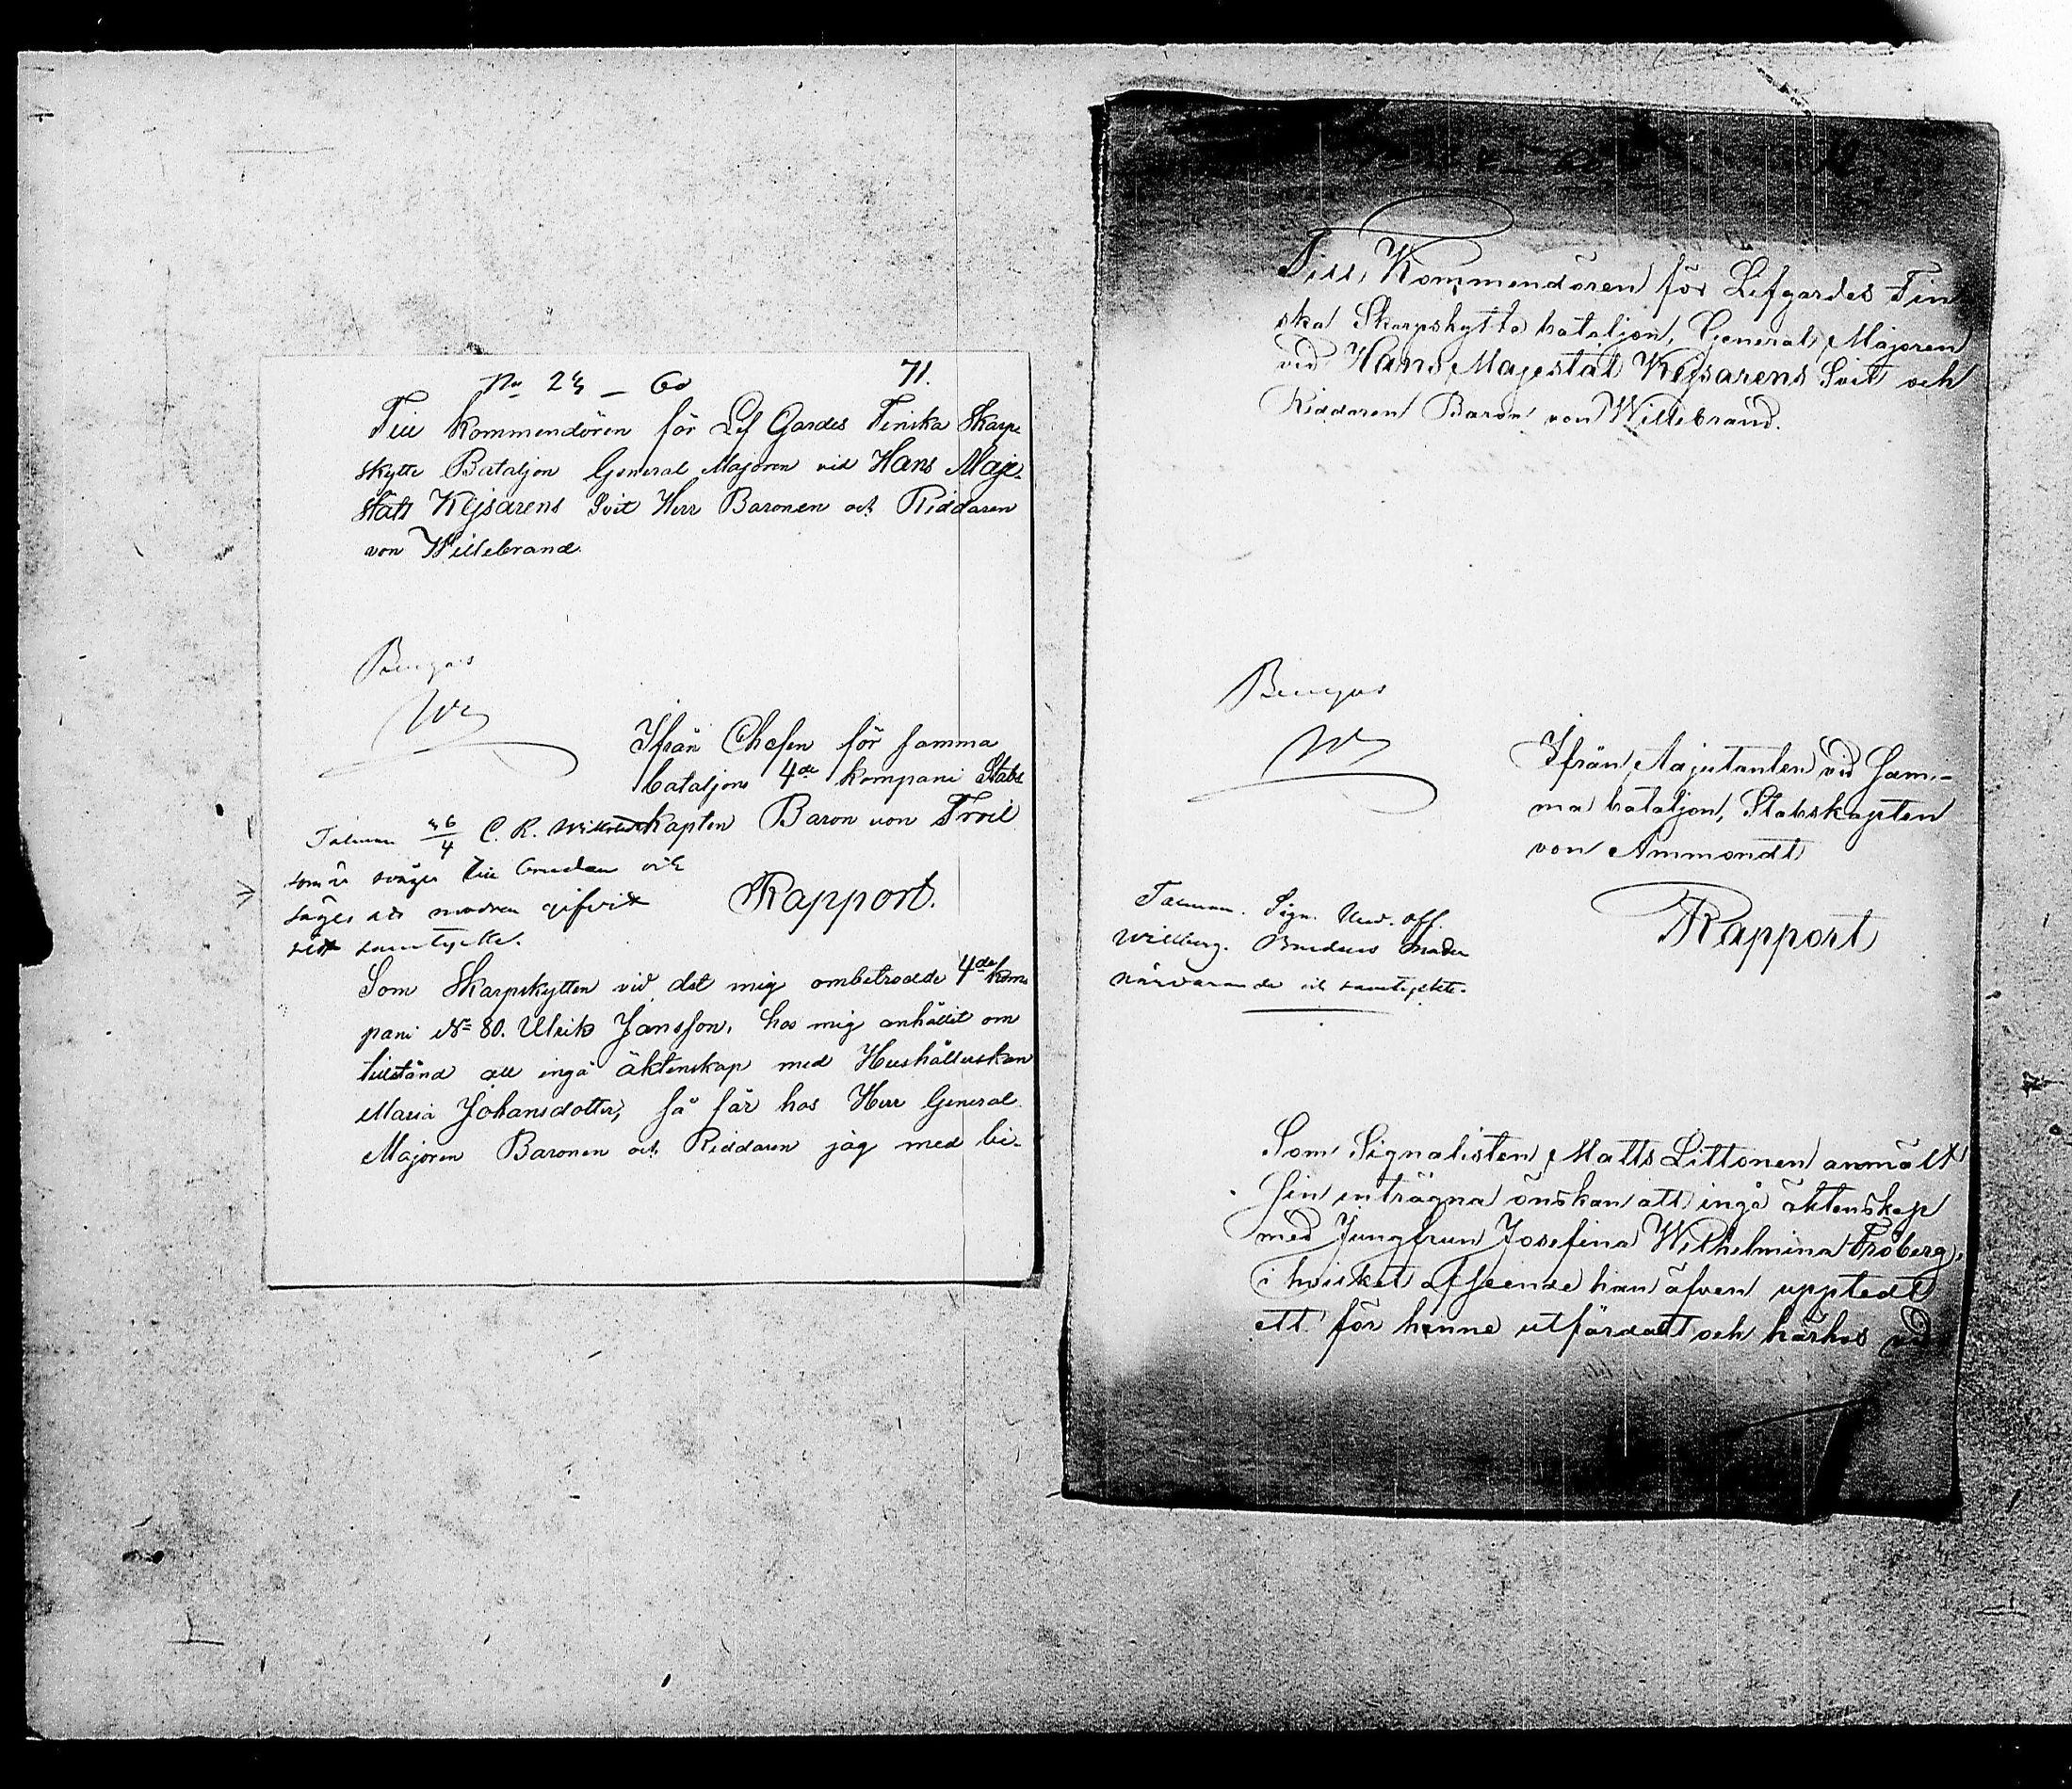 71.
Till Kommendören för Lif Gardes Finska Skarp-
skytte Bataljon General Majoren vid Hans Maje-
stäts Kejsarens Svit Herr Baronen och Riddaren
von Willebrand.
Beviljas
Ifrån Chefen för samma
bataljons 4de kompani Stabs
kapten Baron von Troil
Talman 26/4 C. R.
som är svåger till bruden och
säger att modren gifvit
sitt samtycke.
Rapport.
Som Skarpskytten vid det mig ombetrodde 4de kom-
pani No 80. Ulrik Jansson, hos mig anhållit om
tillstånd att ingå äktenskap med Hushållerskan
Maria Johansdotter, så får hos Herr General
Majoren Baronen och Riddaren jag med bi-
Till Kommendören för Lifgardes Fin
ska Skarpskytte bataljon, General Majoren
vid Hans Majestät Kejsarens Svit och
Riddaren Baron von Willebrand.
Beviljas
Ifrån Adjutanten vid sam-
ma bataljon, Stabskapten
von Ammondt
Talman. Sign. Und. off.
Willberg. Brudens moder
närvarande och samtyckte.
Rapport
Som Signalisten Matts Littonen anmält
sin enträgna önskan att ingå äktenskap
med Jungfrun Josefina Wilhelmina Fröberg,
i hvilket afseende han äfven upptedt
ett för henne utfärdatt och härhos vid